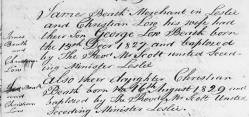 James Beath Merchant in Leslie
and Christian Low his wife had
their Son George Low Beath born
the 13th Decr 1827 and baptized
by The Revd Mr Scott united Seced
ing Minister Leslie
Also their daughter Christian
Beath born the 16th August 1829 and
baptized by the Revd Mr Scott United
Seceding Minister Leslie
James
Beath
&
Christian
Low
and
Christian
Low